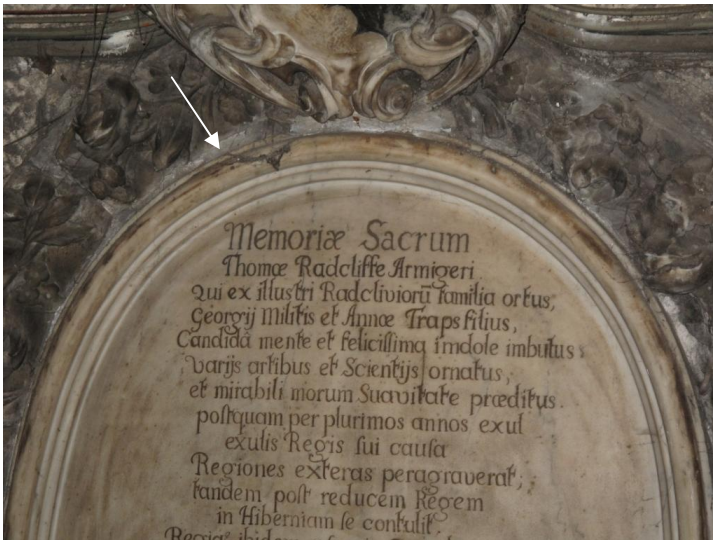 Memoriæ Sacrum
Thomæ Radcliffe Armigeri
Qui ex illustri Radcliviorū familia ortus,
Georgij Militis et Annœ Traps filius,
Candidâ mente et felicissima imdole imbutus
varijs artibus et Scientijs ornatus,
et mirabili morum Suavitate præditus.
postquam per plurimos annos exul
exulis Regis sui causa
Regiones exteras peragraverat;
tandem post reducem Regem
in Hiberniam se contulit.